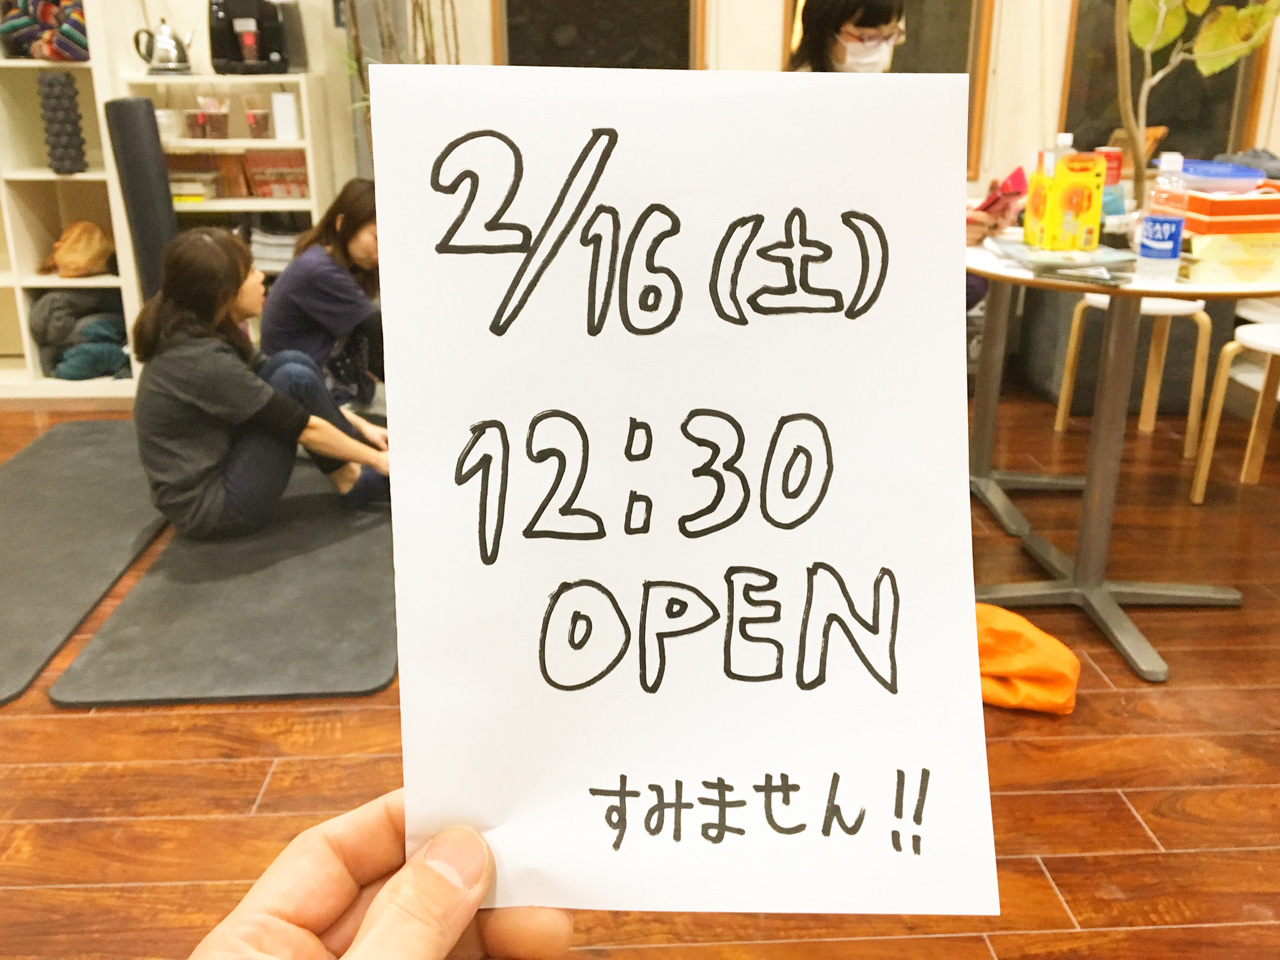 2/16(土)
12:30
OPEN
すみません!!